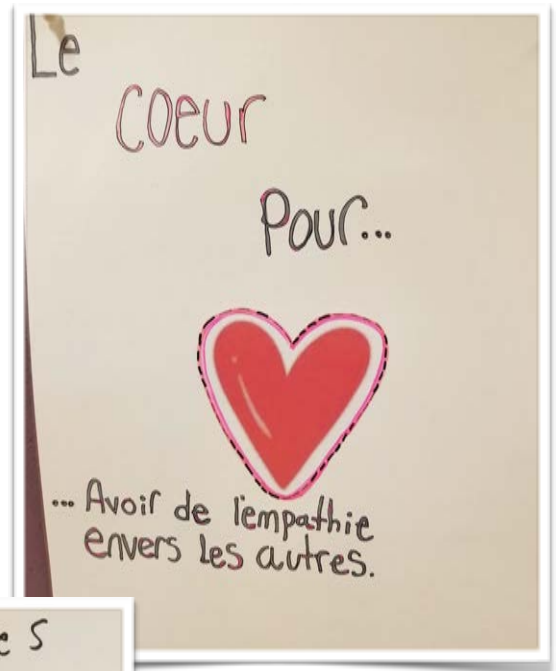 Le
coeur
Pour...
... Avoir de l'empathie
envers les autres.